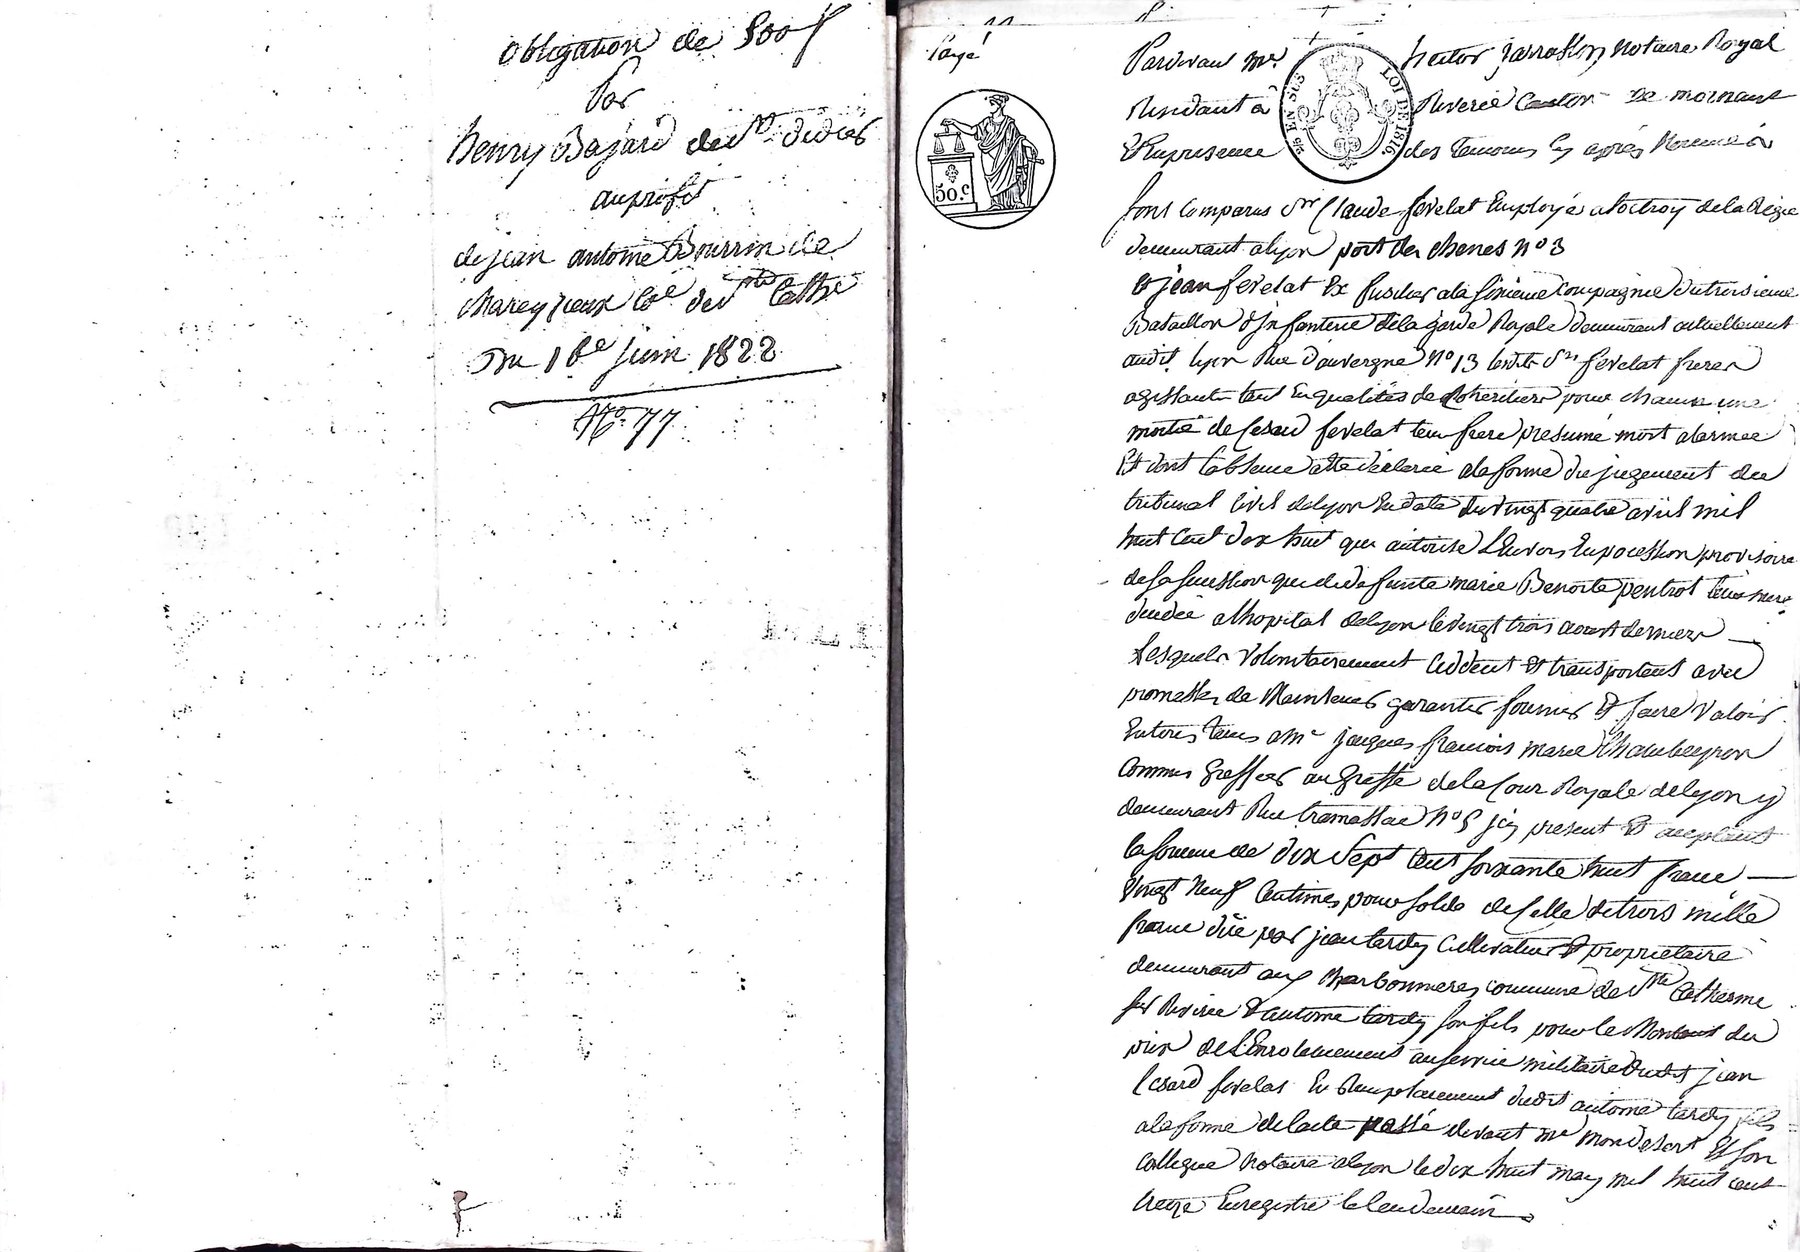 obligation de 800 f
Par
henry Bajard de St didier
au profit
de jean antoine Bourrin de
Mareyzieux Cne de Ste Cathe
Du 16e juin 1822
No. 77
Payé
50.c
EN SUS
LOI DE 1816
Pardevant Me hector jarrosson notaire Royal
Residant à Riverie Canton de mornant
& En presence des temoins cy après Nommés
sont comparus Sr Claude fevelat Employé a loctroy de la Regie
demeurant a lyon port des chenes no 3
& jean fevelat Ex fusilier a la sixieme compagnie du troisieme
Bataillon d'Infanterie de la garde Royale demeurant actuellement
audit lyon Rue d'auvergne No 13 lesdits Srs fevelat freres
agissants tant En qualités de Coheritiers pour chacun une
moitié de Cesard fevelat leur frere presumé mort a larmée
Et dont labsence a été déclarée a la forme du jugement du
tribunal Civil de lyon En date du vingt quatre avril mil
huit Cent dix huit qui autorise L'Envoi En possession provisoire
de sa succession que de defunte marie Benoite pentrot leur mere
décédée a lhopital de lyon le vingt trois aoust dernier
Lesquels Volontairement Cedent & transportent avec
promesse de Maintenir garantir fournir & faire Valoir
En tous tems a Me jacques francois marie Chambeyron
Commis Greffier au Greffe de la Cour Royale de lyon y
demeurant Rue tramassac No 5 jcy present & acceptant
la somme de dix Sept Cent soixante huit franc
vingt Neuf Centimes pour solde de Celle de trois mille
franc düe par jean tardy Cultivateur & proprietaire
demeurant aux Charbonnieres commune de Ste Catherine
sur Riviere & antoine tardy son fils pour le Montant du
prix de L'Enrolement au service militaire dudit jean
Cesard fevelat En Remplacement dudit antoine tardy fils
a la forme de lacte passé devant Me mondesert & son
Collegue Notaire a lyon le dix huit may mil huit cent
treize Enregistré le lendemain